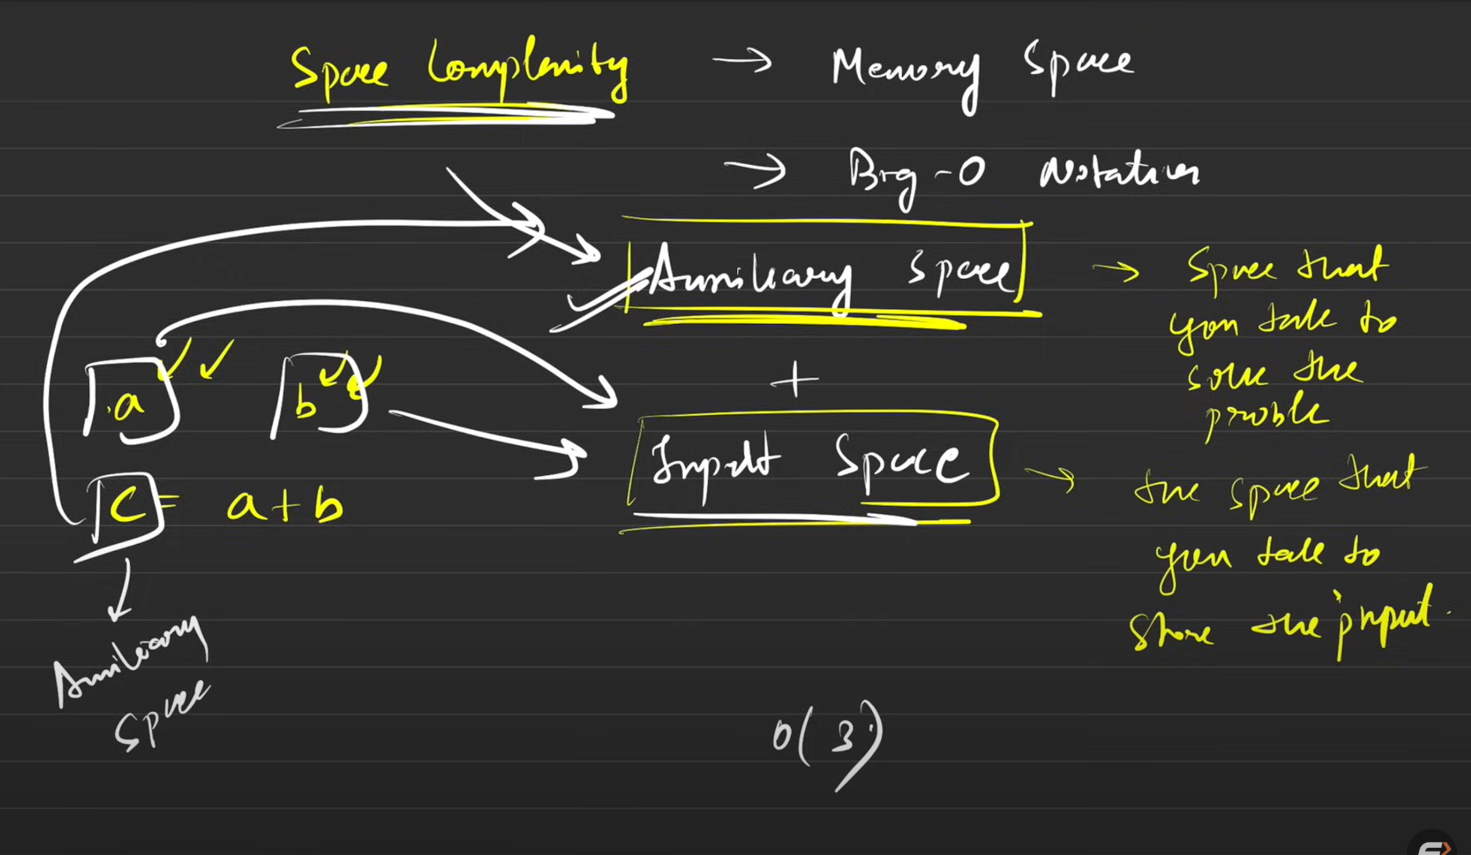 Space Complexity → Memory Space
→ Big-O Notation
Auxiliary Space → Space that
you take to
solve the
problem
+
a b
Input Space → the space that
you take to
store the input.
c = a + b
Auxiliary
Space
O(3)